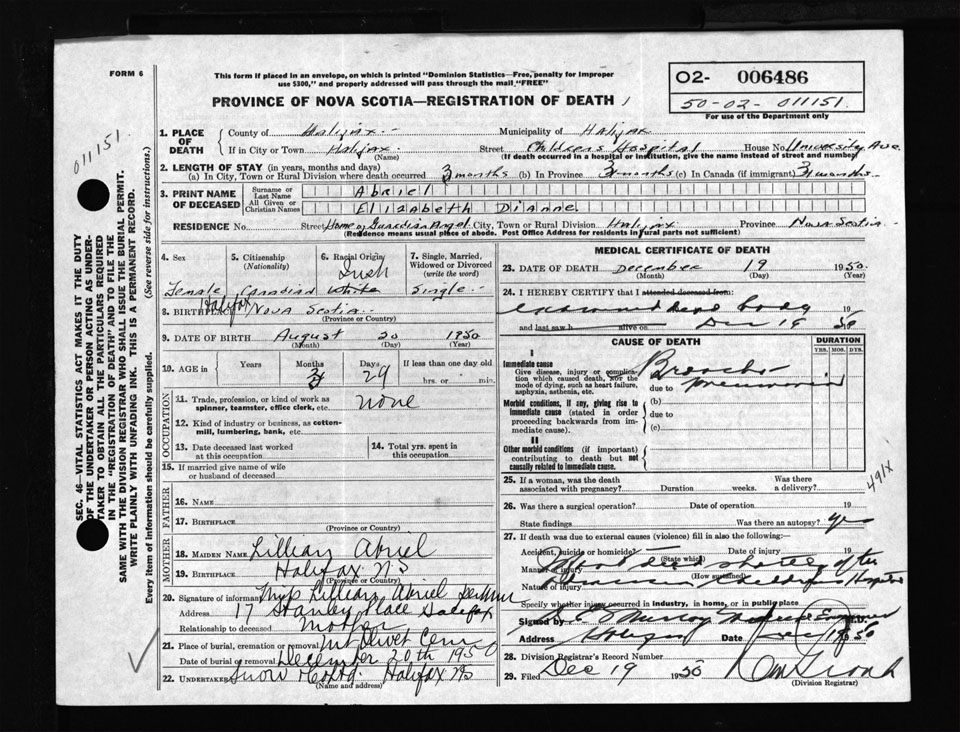 FORM 6
This form if placed in an envelope, on which is printed "Dominion Statistics—Free, penalty for improper
use $300," and properly addressed will pass through the mail "FREE"
PROVINCE OF NOVA SCOTIA—REGISTRATION OF DEATH
O2- 006486
50-02- 011151.
For use of the Department only
011151.
SEC. 46—VITAL STATISTICS ACT MAKES IT THE DUTY
OF THE UNDERTAKER OR PERSON ACTING AS UNDER-
TAKER TO OBTAIN ALL THE PARTICULARS REQUIRED
IN THE "REGISTRATION OF DEATH" AND TO FILE THE
SAME WITH THE DIVISION REGISTRAR WHO SHALL ISSUE THE BURIAL PERMIT.
WRITE PLAINLY WITH UNFADING INK. THIS IS A PERMANENT RECORD.
Every item of information should be carefully supplied. (See reverse side for instructions.)
1. PLACE OF DEATH
County of Halifax Municipality of Halifax
If in City or Town Halifax Street Childrens Hospital House No. University Ave.
(Name) (If death occurred in a hospital or institution, give the name instead of street and number)
2. LENGTH OF STAY (in years, months and days)
(a) In City, Town or Rural Division where death occurred 3 months (b) In Province 3 months (c) In Canada (if immigrant) 3 months
3. PRINT NAME OF DECEASED
Surname or Last Name Abriel
All Given or Christian Names Elizabeth Dianne
RESIDENCE No. Street Home of Guardian Angel City, Town or Rural Division Halifax Province Nova Scotia
(Residence means usual place of abode. Post Office Address for residents in rural parts not sufficient)
4. Sex
Female
5. Citizenship (Nationality)
Canadian
6. Racial Origin
Irish
White
7. Single, Married, Widowed or Divorced (write the word)
Single
8. BIRTHPLACE Halifax Nova Scotia
(Province or Country)
9. DATE OF BIRTH August 20 1950
(Month) (Day) (Year)
10. AGE in Years Months Days If less than one day old
3 29 hrs. or min.
OCCUPATION
11. Trade, profession, or kind of work as
spinner, teamster, office clerk, etc. none
12. Kind of industry or business, as cotton-
mill, lumbering, bank, etc.
13. Date deceased last worked
at this occupation
14. Total yrs. spent in
this occupation
15. If married give name of wife
or husband of deceased
FATHER
16. NAME
17. BIRTHPLACE
(Province or Country)
MOTHER
18. MAIDEN NAME Lillian Abriel
19. BIRTHPLACE Halifax NS
(Province or Country)
20. Signature of informant Miss Lillian Abriel
Address 17 Stanley Place Halifax
Relationship to deceased mother
21. Place of burial, cremation or removal Mt Olivet Cem
Date of burial or removal December 20th 1950
22. UNDERTAKER Snow & Co Ltd. Halifax NS
(Name and address)
MEDICAL CERTIFICATE OF DEATH
23. DATE OF DEATH December 19 1950
(Month) (Day) (Year)
24. I HEREBY CERTIFY that I attended deceased from:
examined dead body 19
and last saw h alive on Dec 19 50
CAUSE OF DEATH
DURATION
YRS. MOS. DYS.
I
Immediate cause
Give disease, injury or complica-
tion which caused death, not the
mode of dying, such as heart failure,
asphyxia, asthenia, etc.
Broncho
due to pneumonia
Morbid conditions, if any, giving rise to
immediate cause (stated in order
proceeding backwards from im-
mediate cause).
(b)
due to
(c)
II
Other morbid conditions (if important)
contributing to death but not
causally related to immediate cause.
25. If a woman, was the death
associated with pregnancy? Duration weeks. Was there
a delivery?
491X
26. Was there a surgical operation? Date of operation 19
State findings Was there an autopsy? yes
27. If death was due to external causes (violence) fill in also the following:
Accident, suicide or homicide? Date of injury 19
(State which)
Manner of injury shortly after
(How sustained)
Nature of injury admission Childrens Hospital
Specify whether injury occurred in industry, in home, or in public place
Signed by Murray Medical Examiner M.D.
Address Halifax Date Dec 19 1950
28. Division Registrar's Record Number
29. Filed Dec 19 1950
(Division Registrar)